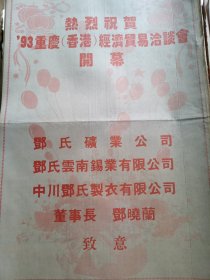 熱烈祝賀
'93重慶(香港)經濟貿易洽談會
開幕
鄧氏礦業公司
鄧氏雲南錫業有限公司
中川鄧氏製衣有限公司
董事長 鄧曉蘭
致意